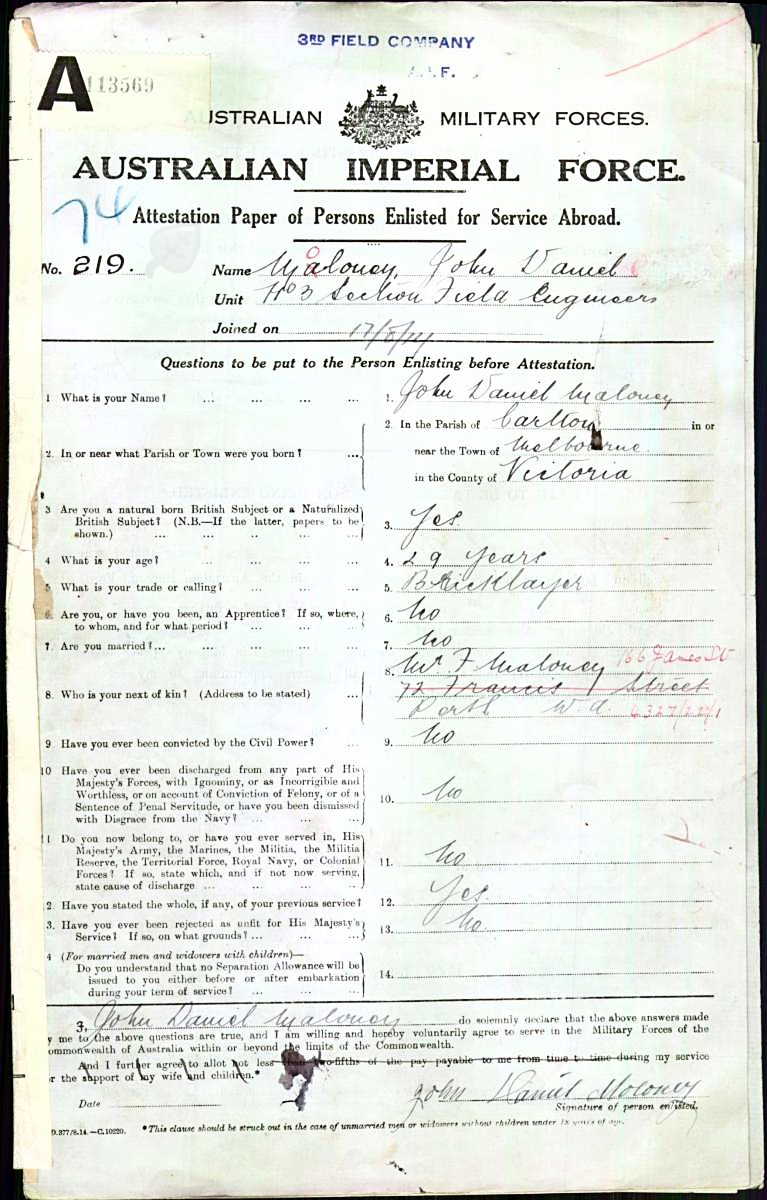 3RD FIELD COMPANY
A.I.F.
A 113569
AUSTRALIAN MILITARY FORCES.
AUSTRALIAN IMPERIAL FORCE.
74
Attestation Paper of Persons Enlisted for Service Abroad.
No. 219. Name Maloney, John Daniel
o
Unit No 3 Section Field Engineers
Joined on 17/8/14
Questions to be put to the Person Enlisting before Attestation.
1 What is your Name? ... ... ... ... 1. John Daniel Maloney
2. In or near what Parish or Town were you born? ... 2. In the Parish of Carlton in or
near the Town of Melbourne.
in the County of Victoria
3 Are you a natural born British Subject or a Naturalized
British Subject? (N.B.—If the latter, papers to be
shown.) ... ... ... ... 3. Yes
4 What is your age? ... ... ... ... 4. 29 years
5 What is your trade or calling? ... ... ... 5. Bricklayer
6. Are you, or have you been, an Apprentice? If so, where,
to whom, and for what period? ... ... ... 6. No
7. Are you married?... ... ... ... 7. No
8. Who is your next of kin? (Address to be stated) ... 8. Mr F Maloney 166 James St
72 Francis Street
Perth W.A.
9 Have you ever been convicted by the Civil Power? ... 9. No
10 Have you ever been discharged from any part of His
Majesty's Forces, with Ignominy, or as Incorrigible and
Worthless, or on account of Conviction of Felony, or of a
Sentence of Penal Servitude, or have you been dismissed
with Disgrace from the Navy? ... ... ... 10. No
11 Do you now belong to, or have you ever served in, His
Majesty's Army, the Marines, the Militia, the Militia
Reserve, the Territorial Force, Royal Navy, or Colonial
Forces? If so, state which, and if not now serving,
state cause of discharge ... ... ... ... 11. No
2. Have you stated the whole, if any, of your previous service? 12. Yes
3. Have you ever been rejected as unfit for His Majesty's
Service? If so, on what grounds? ... ... ... 13. No
4 (For married men and widowers with children)—
Do you understand that no Separation Allowance will be
issued to you either before or after embarkation
during your term of service? ... ... ... 14.
I, John Daniel Maloney do solemnly declare that the above answers made
y me to the above questions are true, and I am willing and hereby voluntarily agree to serve in the Military Forces of the
ommonwealth of Australia within or beyond the limits of the Commonwealth.
And I further agree to allot not less than two-fifths of the pay payable to me from time to time during my service
r the support of my wife and children.*
Date John Daniel Moloney
Signature of person enlisted.
D.377/8.14.—C.10220. *This clause should be struck out in the case of unmarried men or widowers without children under 18 years of age.